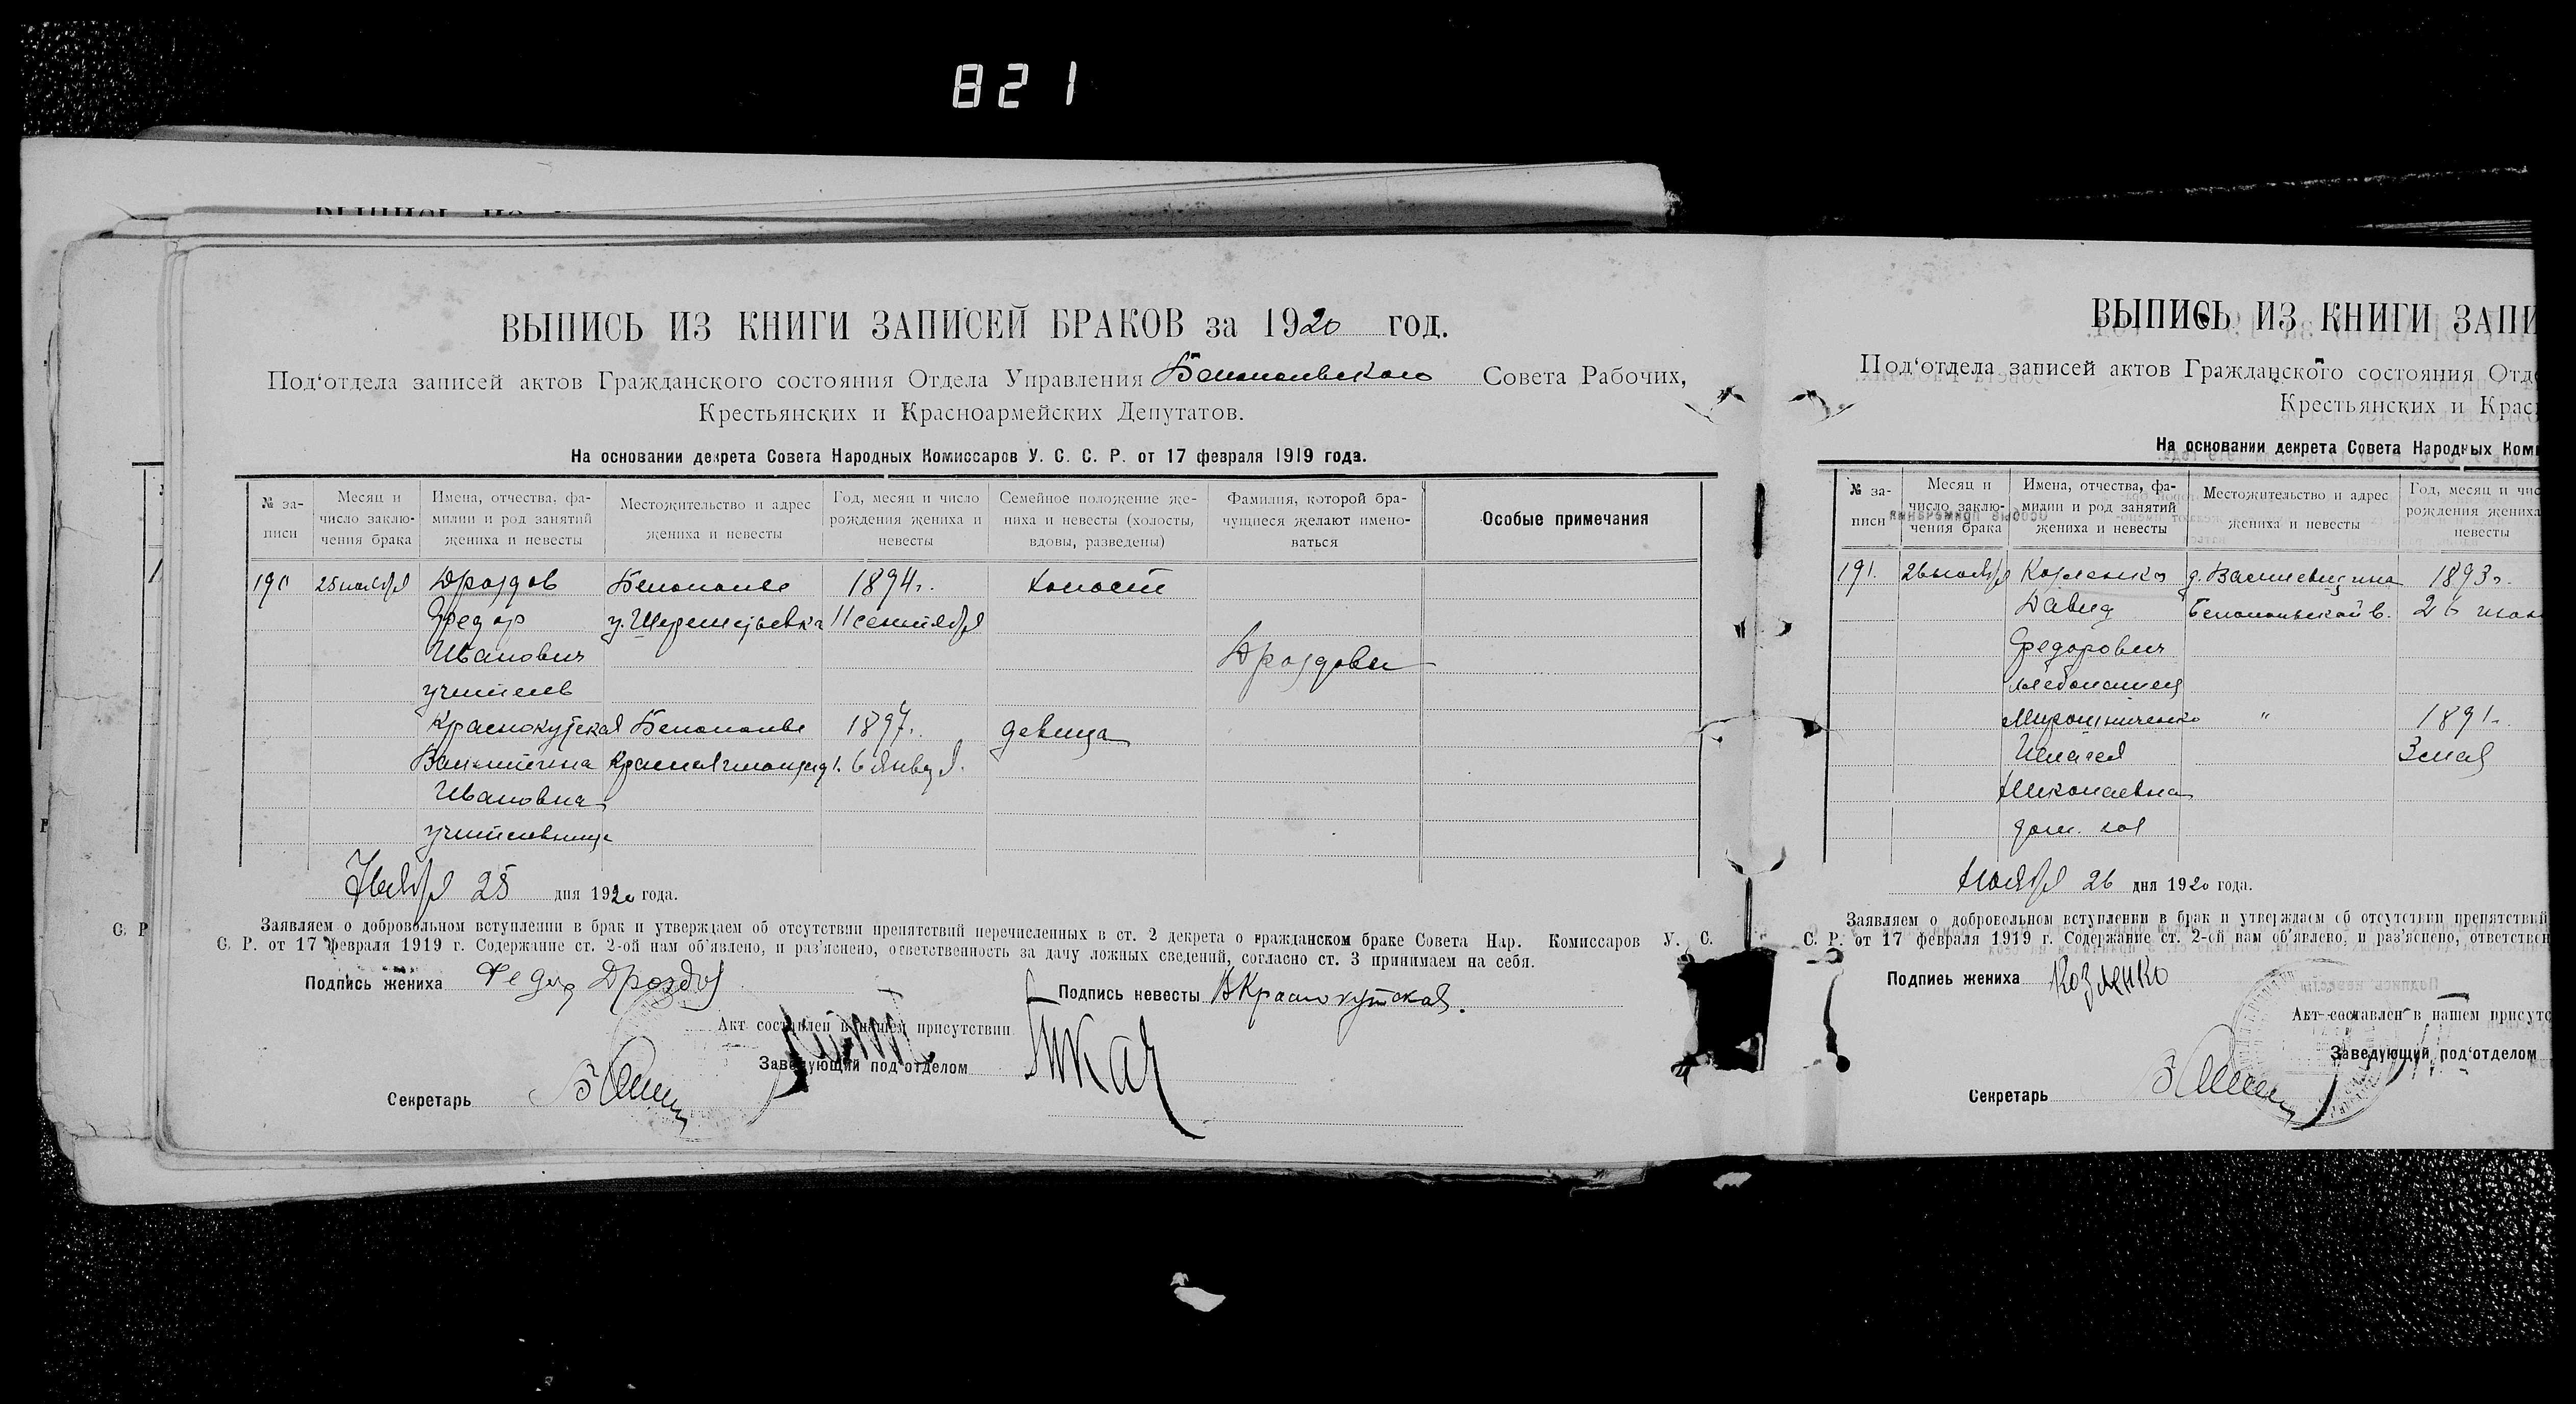 821
ВЫПИСЬ ИЗ КНИГИ ЗАПИСЕЙ БРАКОВ за 1920 год.
Под'отдела записей актов Гражданского состояния Отдела Управления Белопольского Совета Рабочих,
Крестьянских и Красноармейских Депутатов.
На основании декрета Совета Народных Комиссаров У. С. С. Р. от 17 февраля 1919 года.
№ за-писи | Месяц и число заклю-чения брака | Имена, отчества, фа-милии и род занятий жениха и невесты | Местожительство и адрес жениха и невесты | Год, месяц и число рождения жениха и невесты | Семейное положение же-ниха и невесты (холосты, вдовы, разведены) | Фамилия, которой бра-чущиеся желают имено-ваться | Особые примечания
190 25 ноября Дроздов Белополье 1894 г. холост
Федор 11 сентября
Иванович Дроздовы
учитель
Краснокутская Белополье 1897 г. девица
Валентина 6 января
Ивановна
учительница
Ноября 25 дня 1920 года.
Заявляем о добровольном вступлении в брак и утверждаем об отсутствии препятствий перечисленных в ст. 2 декрета о гражданском браке Совета Нар. Комиссаров У. С.
С. Р. от 17 февраля 1919 г. Содержание ст. 2-ой нам об'явлено, и раз'яснено, ответственность за дачу ложных сведений, согласно ст. 3 принимаем на себя.
Подпись жениха Федор Дроздов
Подпись невесты В Краснокутская.
Акт составлен в нашем присутствии
Заведующий под'отделом
Секретарь
ВЫПИСЬ ИЗ КНИГИ ЗАПИ
Под'отдела записей актов Гражданского состояния Отде
Крестьянских и Крас
На основании декрета Совета Народных Ком
№ за-писи | Месяц и число заклю-чения брака | Имена, отчества, фа-милии и род занятий жениха и невесты | Местожительство и адрес жениха и невесты | Год, месяц и чис рождения жениха невесты
191. 26 ноября Козленко 1893 г.
Давид Белопольской в. 26
Федорович
хлебопашец
Мирошниченко " 1891 г.
3 мая
Николаевна
дом. хоз
Ноября 26 дня 1920 года.
Заявляем о добровольном вступлении в брак и утверждаем об отсутствии препятствий
С. Р. от 17 февраля 1919 г. Содержание ст. 2-ой нам об'явлено, и раз'яснено, ответствен
Подпись жениха Козленко
Акт составлен в нашем присутс
Заведующий под'отделом
Секретарь
С. Р